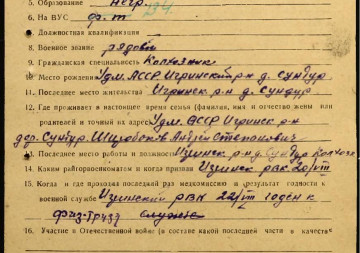 5. Образование негр.
6. На ВУС ф-т 134
7. Должностная квалификация
8. Военное звание рядовой
9. Гражданская специальность Колхозник
10. Место рождения Удм. АССР Игринский р-н д. Сундур
11. Последнее место жительства Игринск р-н д. Сундур
12. Где проживает в настоящее время семья (фамилия, имя и отчество жены или
родителей и точный адрес) Удм. АССР Игринск р-н
дер. Сундур Широбоков Андрей Степанович
13. Последнее место работы и должность Игринск р-н д. Сундур Колхозн
14. Каким райгорвоенкоматом и когда призван Игринск РВК 20/VIII
15. Когда и где проходил последний раз медкомиссию и результат годности к
военной службе Игринский РВК 22/VIII годен к
физ-труду
16. Участие в Отечественной войне (в составе какой последней части в качеств